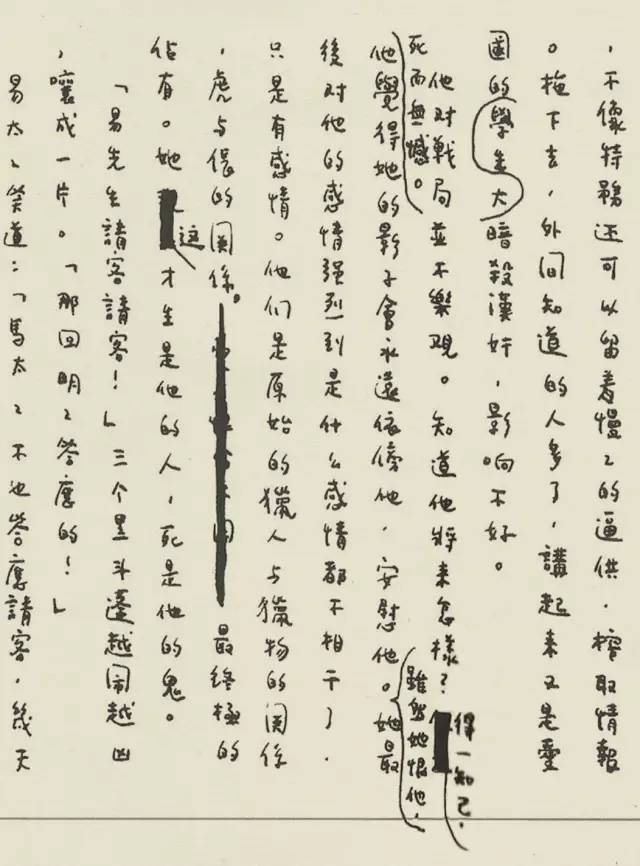 ，不像特務还可以留着慢〻的逼供，榨取情報
。拖下去，外间知道的人多了，講起来又是愛
國的學生大暗殺漢奸，影响不好。
他对戰局並不樂观。知道他将来怎樣？得一知己，
死而無憾。他覺得她的影子會永遠依傍他，安慰他。雖然她恨他，她最
後对他的感情强烈到是什么感情都不相干了，
只是有感情。他们是原始的獵人与獵物的関係
，虎与倀的関係。最终極的
佔有。她这才生是他的人，死是他的鬼。
「易先生請客請客！」三个黑斗蓬越闹越凶
，嚷成一片。「那回明〻答應的！」
易太〻笑道：「馬太〻不也答應請客，幾天